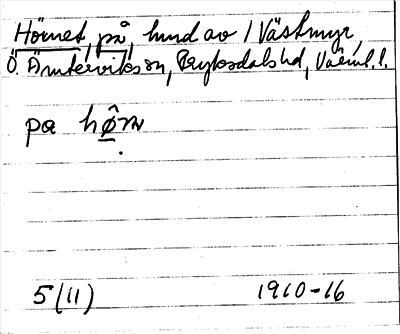 Hörnet, på, hmd av 1 Västmyr,
Ö. Ämterviks sn, Fryksdals hd, Värml. l.
pa hø̂ɳ
5(11) 1910-16